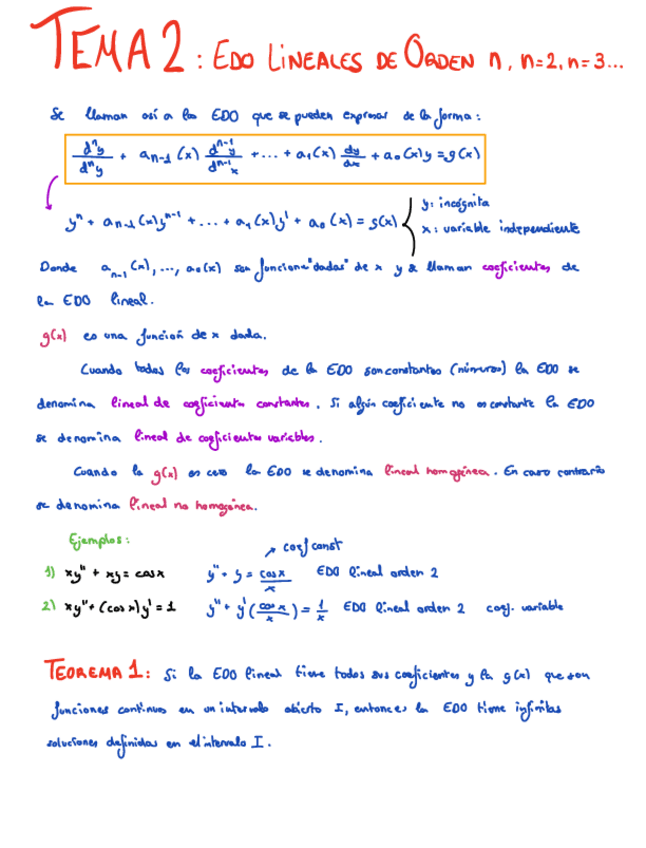 TEMA 2: EDO LINEALES DE ORDEN n, n=2, n=3...
Se llaman así a las EDO que se pueden expresar de la forma:
dⁿy/dⁿy + aₙ₋₁(x) dⁿ⁻¹y/dⁿ⁻¹x + ... + a₁(x) dy/dx + a₀(x)y = g(x)
yⁿ + aₙ₋₁(x)yⁿ⁻¹ + ... + a₁(x)y' + a₀(x) = g(x)
y: incógnita
x: variable independiente
Donde aₙ₋₁(x), ..., a₀(x) son funciones "dadas" de x y se llaman coeficientes de
la EDO lineal.
g(x) es una función de x dada.
Cuando todos los coeficientes de la EDO son constantes (números) la EDO se
denomina lineal de coeficientes constantes. Si algún coeficiente no es constante la EDO
se denomina lineal de coeficientes variables.
Cuando la g(x) es cero la EDO se denomina lineal homogénea. En caso contrario
se denomina lineal no homogénea.
Ejemplos:
coef const
1) xy'' + xy = cosx y'' + y = cosx/x EDO lineal orden 2
2) xy'' + (cosx)y' = 1 y'' + y'(cosx/x) = 1/x EDO lineal orden 2 coef. variable
TEOREMA 1: Si la EDO lineal tiene todos sus coeficientes y la g(x) que son
funciones continuas en un intervalo abierto I, entonces la EDO tiene infinitas
soluciones definidas en el intervalo I.